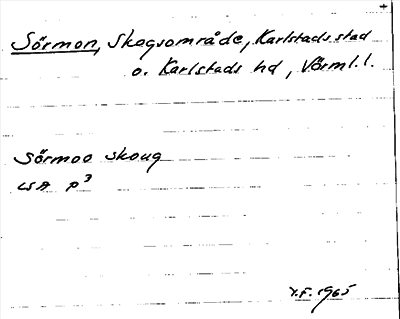 Sörmon, Skogsområde, Karlstads stad
o. Karlstads hd, Värml. l.
Sörmoo skoug
LSA P³
Y.F. 1965